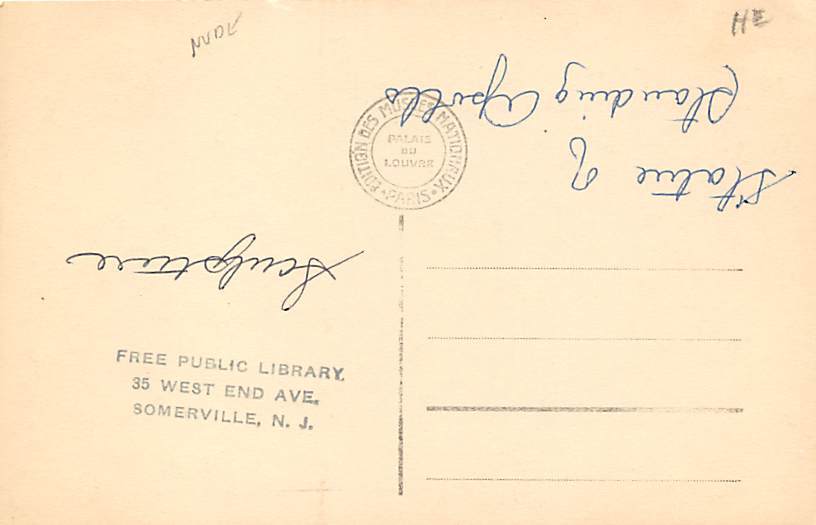 NUDE
HE
EDITION DES MUSEES NATIONAUX
* PARIS *
PALAIS
DU
LOUVRE
Statue of
Standing Apollo
Sculpture
FREE PUBLIC LIBRARY,
35 WEST END AVE.
SOMERVILLE, N. J.